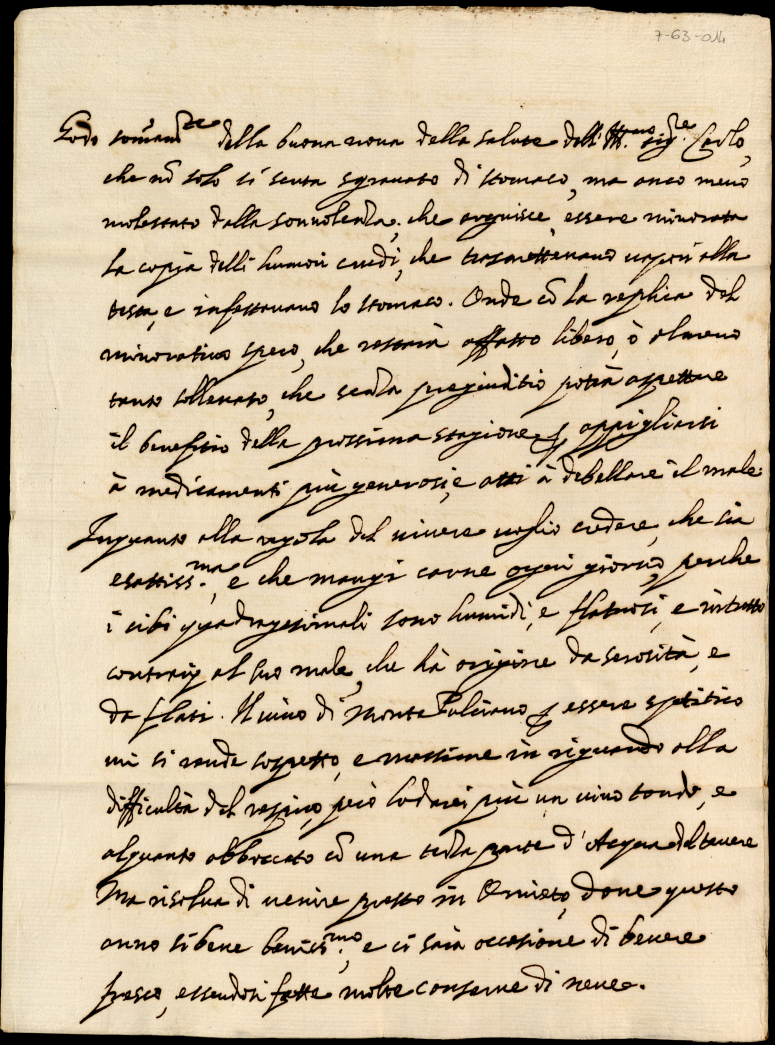 7-63-014
Godo somam.te della buona nova della salute dell'Ill.mo sig.re Carlo,
che nõ solo si senta sgravato di stomaco, ma anco meno
molestato dalla sonnolenza, che arguisce essere minorata
la copia delli humori crudi, che trasmettevano vapori alla
testa, e infestavano lo stomaco. Onde cõ la replica del
minorativo spero, che restarà affatto libero, ò almeno
tanto sollevato, che senza pregiuditio potrà aspettare
il benefitio della prossima stagione p appigliarsi
à medicamenti più generosi, e atti à debellare il male.
Inquanto alla regola del vivere voglio credere, che sia
esattiss.ma, e che mangi carne ogni giorno, perche
i cibi quadragesimali sono humidi, e flatuosi, e in tutto
contrarij al suo male, che hà origine da serosità, e
da flati. Il vino di Monte Pulciano p essere
mi si rende sospetto, e massime in riguardo alla
difficultà del respiro, però lodarei più un vino tondo, e
alquanto abboccato cõ una terza parte d'Acqua del tevere
Ma risolva di venire presto in Orvieto, dove questo
anno si beve beniss.mo, e ci sarà occasione di bevere
fresco, essendosi fatte molte conserve di neve.